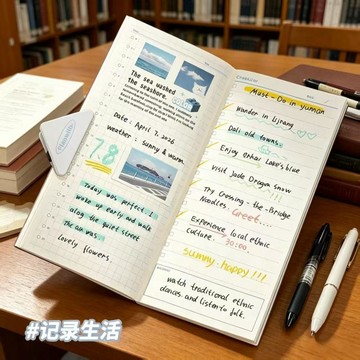 The sea washed
the seashore.
Date: April 7, 2026
Weather: sunny & warm.
78
Today was perfect. I
woke up early and walk
along the quiet street
The air was
Lovely flowers.
Must-Do in YUNNAN
Wander in Lijiang
Dali old towns.
Enjoy Erhai Lake's blue
Visit Jade Dragon snow
Try Crossing-the-Bridge
Noodles. Greet....
Experience local ethnic
culture. 30:00
sunny. happy!!!
watch traditional ethnic
dances and listen to folk.
#记录生活